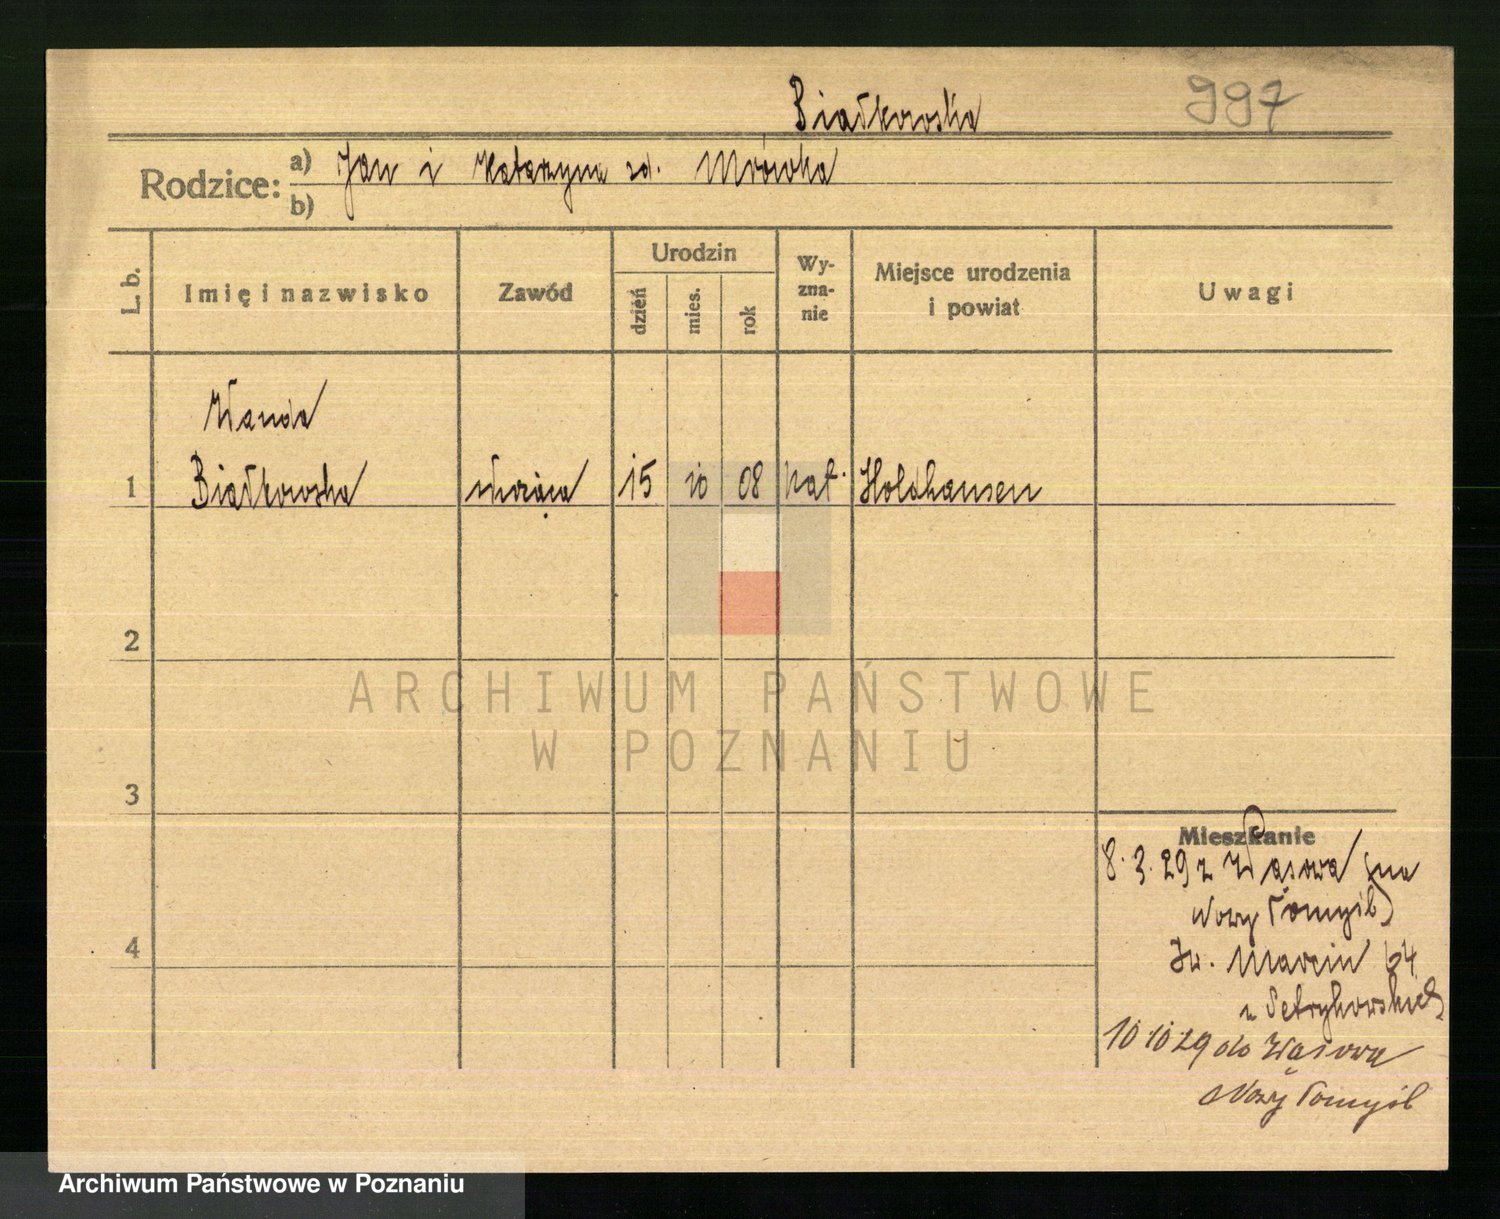 Białkowska
997
Rodzice: a) Jan i Katarzyna zd. Mrówka
b)
L. b.
Imię i nazwisko
Zawód
Urodzin
dzień
mies.
rok
Wy-
zna-
nie
Miejsce urodzenia
i powiat
Uwagi
Wanda
1 Białkowska służąca 15 10 08 kat. Holdhausen
2
ARCHIWUM PAŃSTWOWE
W POZNANIU
3
Mieszkanie
8.3.29 z Wąsowa
Nowy Tomyśl)
Św. Marcin 64
u
4
10 10 29 do Wąsowa
Nowy Tomyśl
Archiwum Państwowe w Poznaniu